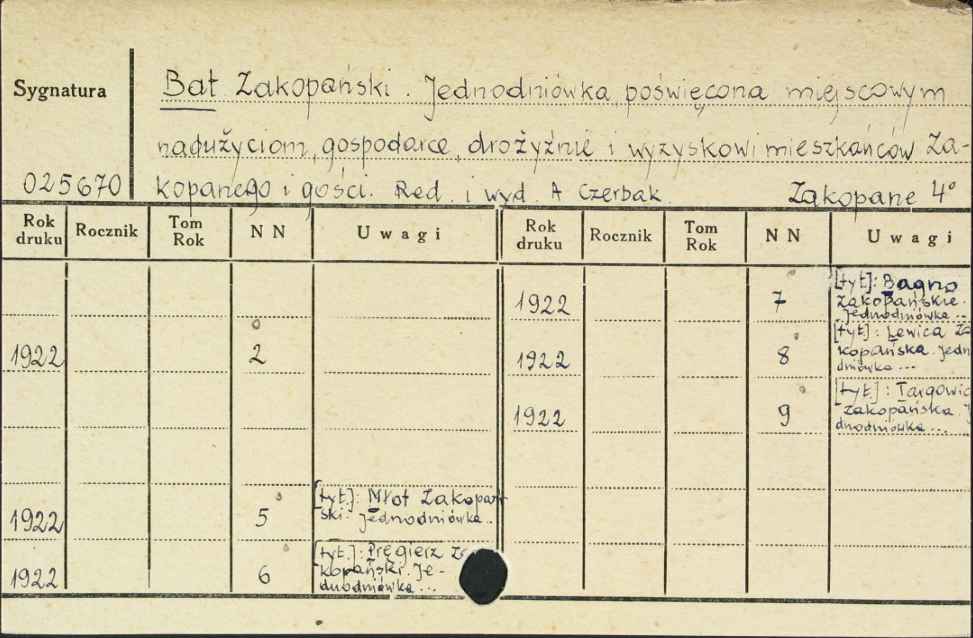 Sygnatura
Bat Zakopański. Jednodniówka poświęcona miejscowym
nadużyciom, gospodarce, drożyźnie i wyzyskowi mieszkańców Za-
025670 kopanego i gości. Red. i wyd. A Czerbak Zakopane 4°
Rok druku Rocznik Tom Rok N N Uwagi Rok druku Rocznik Tom Rok N N Uwagi
1922 2
1922 5 [tyt.]: Młot Zakopań-
ski. Jednodniówka...
1922 6 [tyt.]: Pręgierz Za-
kopański. Je-
dnodniówka...
1922 7 [tyt]: Bagno
zakopańskie.
Jednodniówka...
1922 8 [tyt]: Lewica Za
kopańska. Jedn
dniówka...
1922 9 [tyt.]: Targowic
zakopańska. J
dnodniówka...